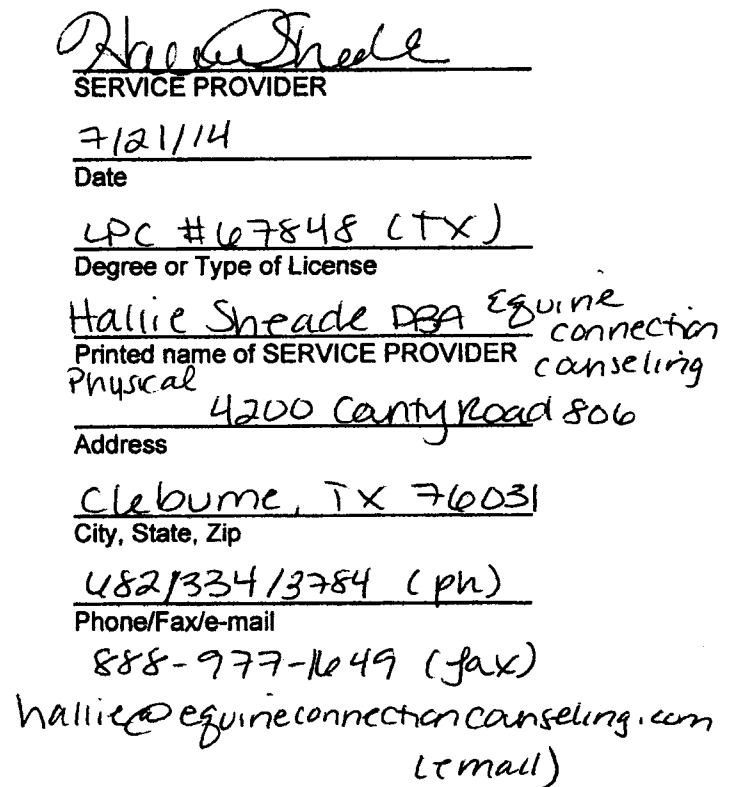 Hallie Sheade
SERVICE PROVIDER
7/21/14
Date
LPC #67848 (TX)
Degree or Type of License
Hallie Sheade DBA Equine
connection
Printed name of SERVICE PROVIDER counseling
Physical
4200 County Road 806
Address
Cleburne, TX 76031
City, State, Zip
682/334/3784 (ph)
Phone/Fax/e-mail
888-977-1649 (fax)
hallie@equineconnectioncounseling.com
(email)